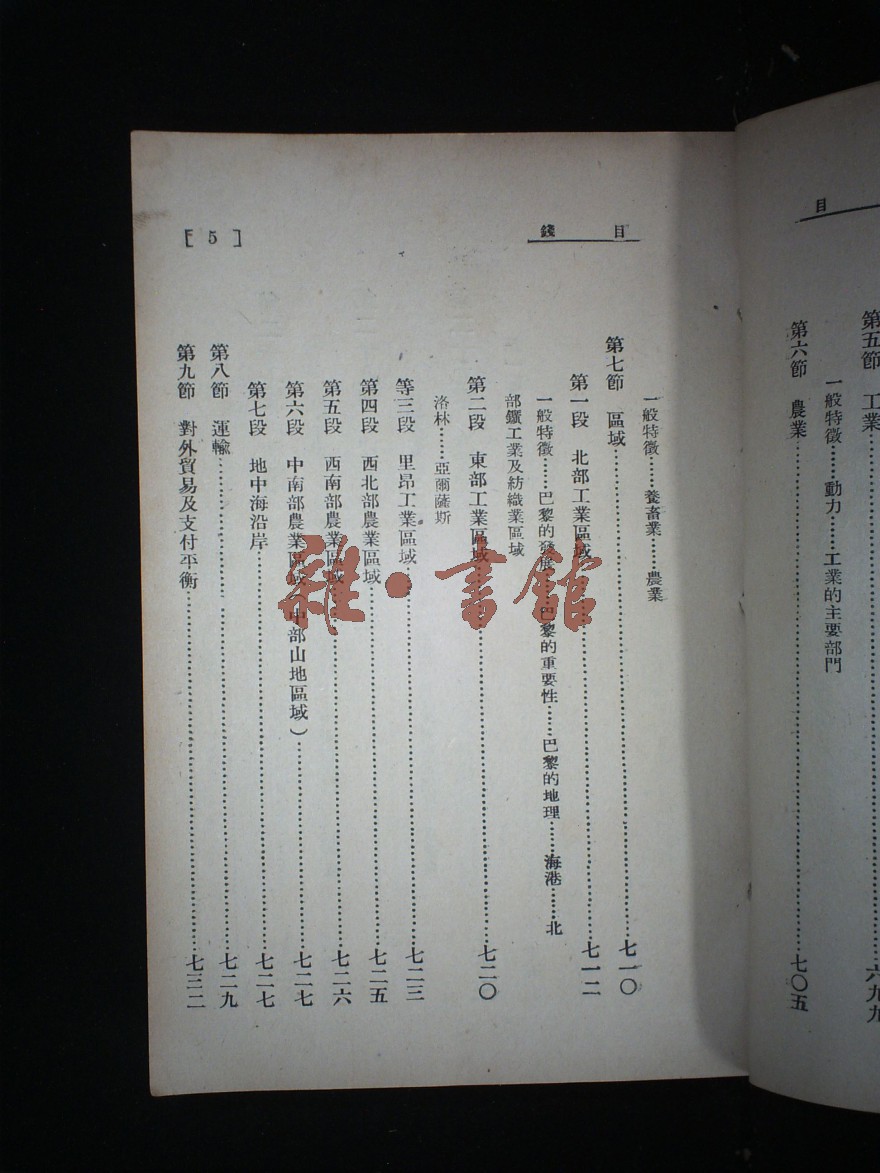 目
第五節 工業……六九九
一般特徵……動力……工業的主要部門
第六節 農業……七〇五
目 錢
[ 5 ]
一般特徵……養畜業……農業
第七節 區域……七一〇
第一段 北部工業區域……七一二
一般特徵……巴黎的發展……巴黎的重要性……巴黎的地理……海港……北
部鑛工業及紡織業區域
第二段 東部工業區域……七二〇
洛林……亞爾薩斯
等三段 里昂工業區域……七二三
第四段 西北部農業區域……七二五
第五段 西南部農業區域……七二六
第六段 中南部農業區域(中部山地區域)……七二七
第七段 地中海沿岸……七二七
第八節 運輸……七二九
第九節 對外貿易及支付平衡……七三二
雜·書館